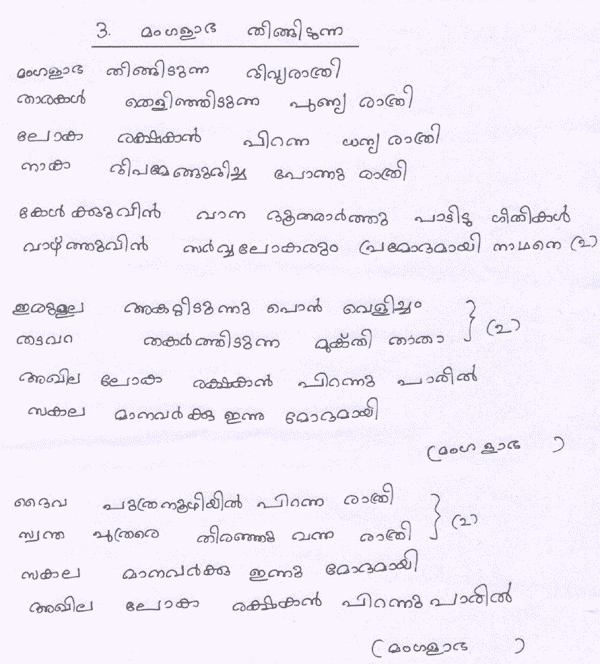 3. മംഗളാഭ തിങ്ങിടുന്ന
മംഗളാഭ തിങ്ങിടുന്ന ദിവ്യരാത്രി
താരകൾ തെളിഞ്ഞിടുന്ന പുണ്യ രാത്രി
ലോകാ രക്ഷകൻ പിറന്ന ധന്യ രാത്രി
നാകാ ദീപമേങ്ങുദിച്ച പോന്നു രാത്രി
കേൾക്കുവിൻ വാന ദൂതരാർത്തു പാടിടു ഗീതികൾ
വാഴ്ത്തുവിൻ സർവ്വലോകരും പ്രമോദമായി നാഥനെ (2)
അകറ്റിടുന്നു പൊൻ വെളിച്ചം
തടവറ തകർത്തിടുന്ന മുക്തി താതാ } (2)
അഖില ലോകാ രക്ഷകൻ പിറന്നു പാരിൽ
സകല മാനവർക്കു ഇന്നു മോദമായി
(മംഗളാഭ )
ദൈവ പുത്രനൂഴിയിൽ പിറന്ന രാത്രി
സ്വന്ത പുത്രരെ തിരഞ്ഞു വന്ന രാത്രി } (2)
സകല മാനവർക്കു ഇന്നു മോദമായി
അഖില ലോകാ രക്ഷകൻ പിറന്നു പാരിൽ
(മംഗളാഭ )